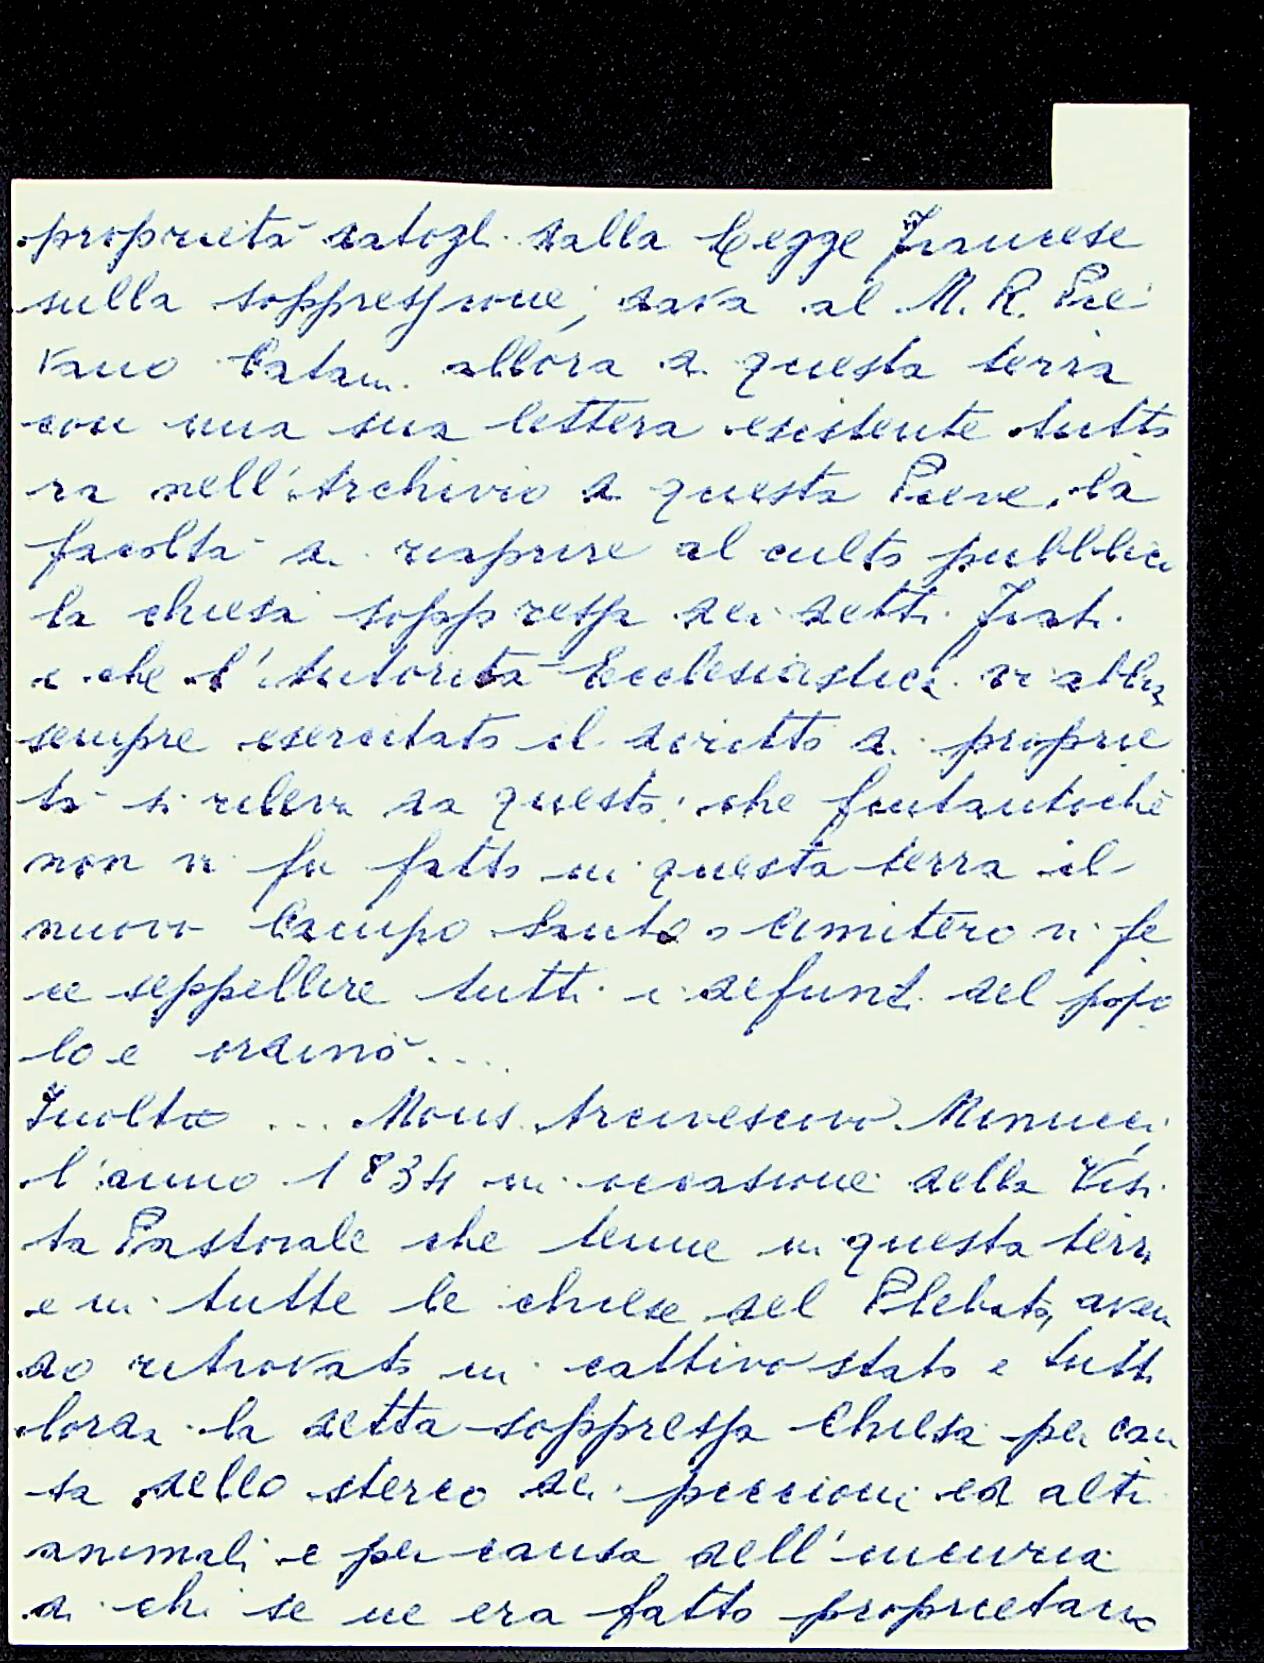 proprietà datogli dalla Legge Francese
sulla soppressione, dava al M. R. Pie
vano Catani allora di questa terra
con una sua lettera esistente tutto
ra nell'Archivio di questa Pieve, la
facoltà di riaprire al culto pubblico
la chiesa soppressa dei detti Frati.
e che l'Autorità Ecclesiastica vi abbia
sempre esercitato il diritto di proprie
tà si rileva da questo: che fintantochè
non vi fu fatto in questa terra il
nuovo Campo Santo o Cimitero vi fe
ce seppellire tutti i defunti del popo
lo e ordinò ...
Inoltre ... Mons. Arcivescovo Minucci,
l'anno 1834 in occasione della Visi
ta Pastorale che tenne in questa terra
e in tutte le chiese del Plebato, aven
do ritrovato in cattivo stato e tutta
lorda la detta soppressa Chiesa per cau
sa dello sterco dei piccioni ed altri
animali e per causa dell'incuria
di chi se ne era fatto proprietario